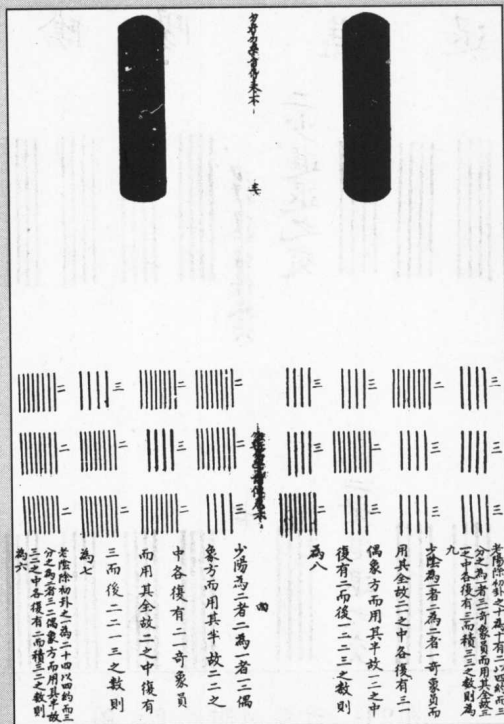 三 二 三 三 二 二 三 二
三 三 二 三 二 三 二 二
三 三 三 二 三 二 二 二
老陽除初卦之一為十有二以四約而三
分之為一者三一奇象員而用其全故三
一之中各復有三而積三三之數則為
九
少陰為一者二為二者一奇象員而
用其全故二一之中各復有三一
偶象方而用其半故一二之中
復有二而後二三一二之數則
為八
四
少陽為二者二為一者一二偶
象方而用其半故二二之
中各復有二一奇象員
而用其全故一之中復有
三而後二二一三之數則
為七
老陰除初卦之一為二十四以四約而三
分之為二者三二偶象方而用其半故
三二之中各復有二而積三二之數則
為六